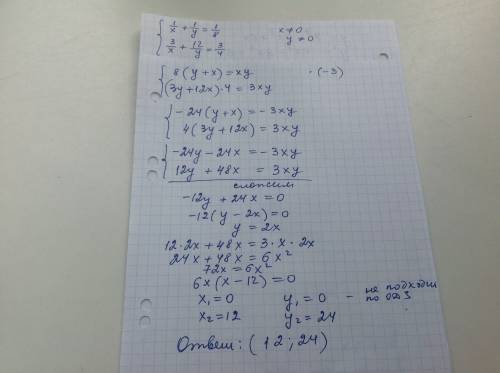 { 1/x + 1/y = 1/8   x ≠ 0
{ 3/x + 12/y = 3/4   y ≠ 0
{ 8(y+x) = xy   ·(-3)
{ (3y+12x)·4 = 3xy
{ -24(y+x) = -3xy
{ 4(3y+12x) = 3xy
{ -24y-24x = -3xy
{ 12y + 48x = 3xy
сложим
-12y + 24x = 0
-12(y - 2x) = 0
y = 2x
12·2x + 48x = 3·x·2x
24x + 48x = 6x²
72x = 6x²
6x(x - 12) = 0
x₁ = 0   y₁ = 0 - не подходи
по ОДЗ
x₂ = 12   y₂ = 24
Ответ: (12; 24)